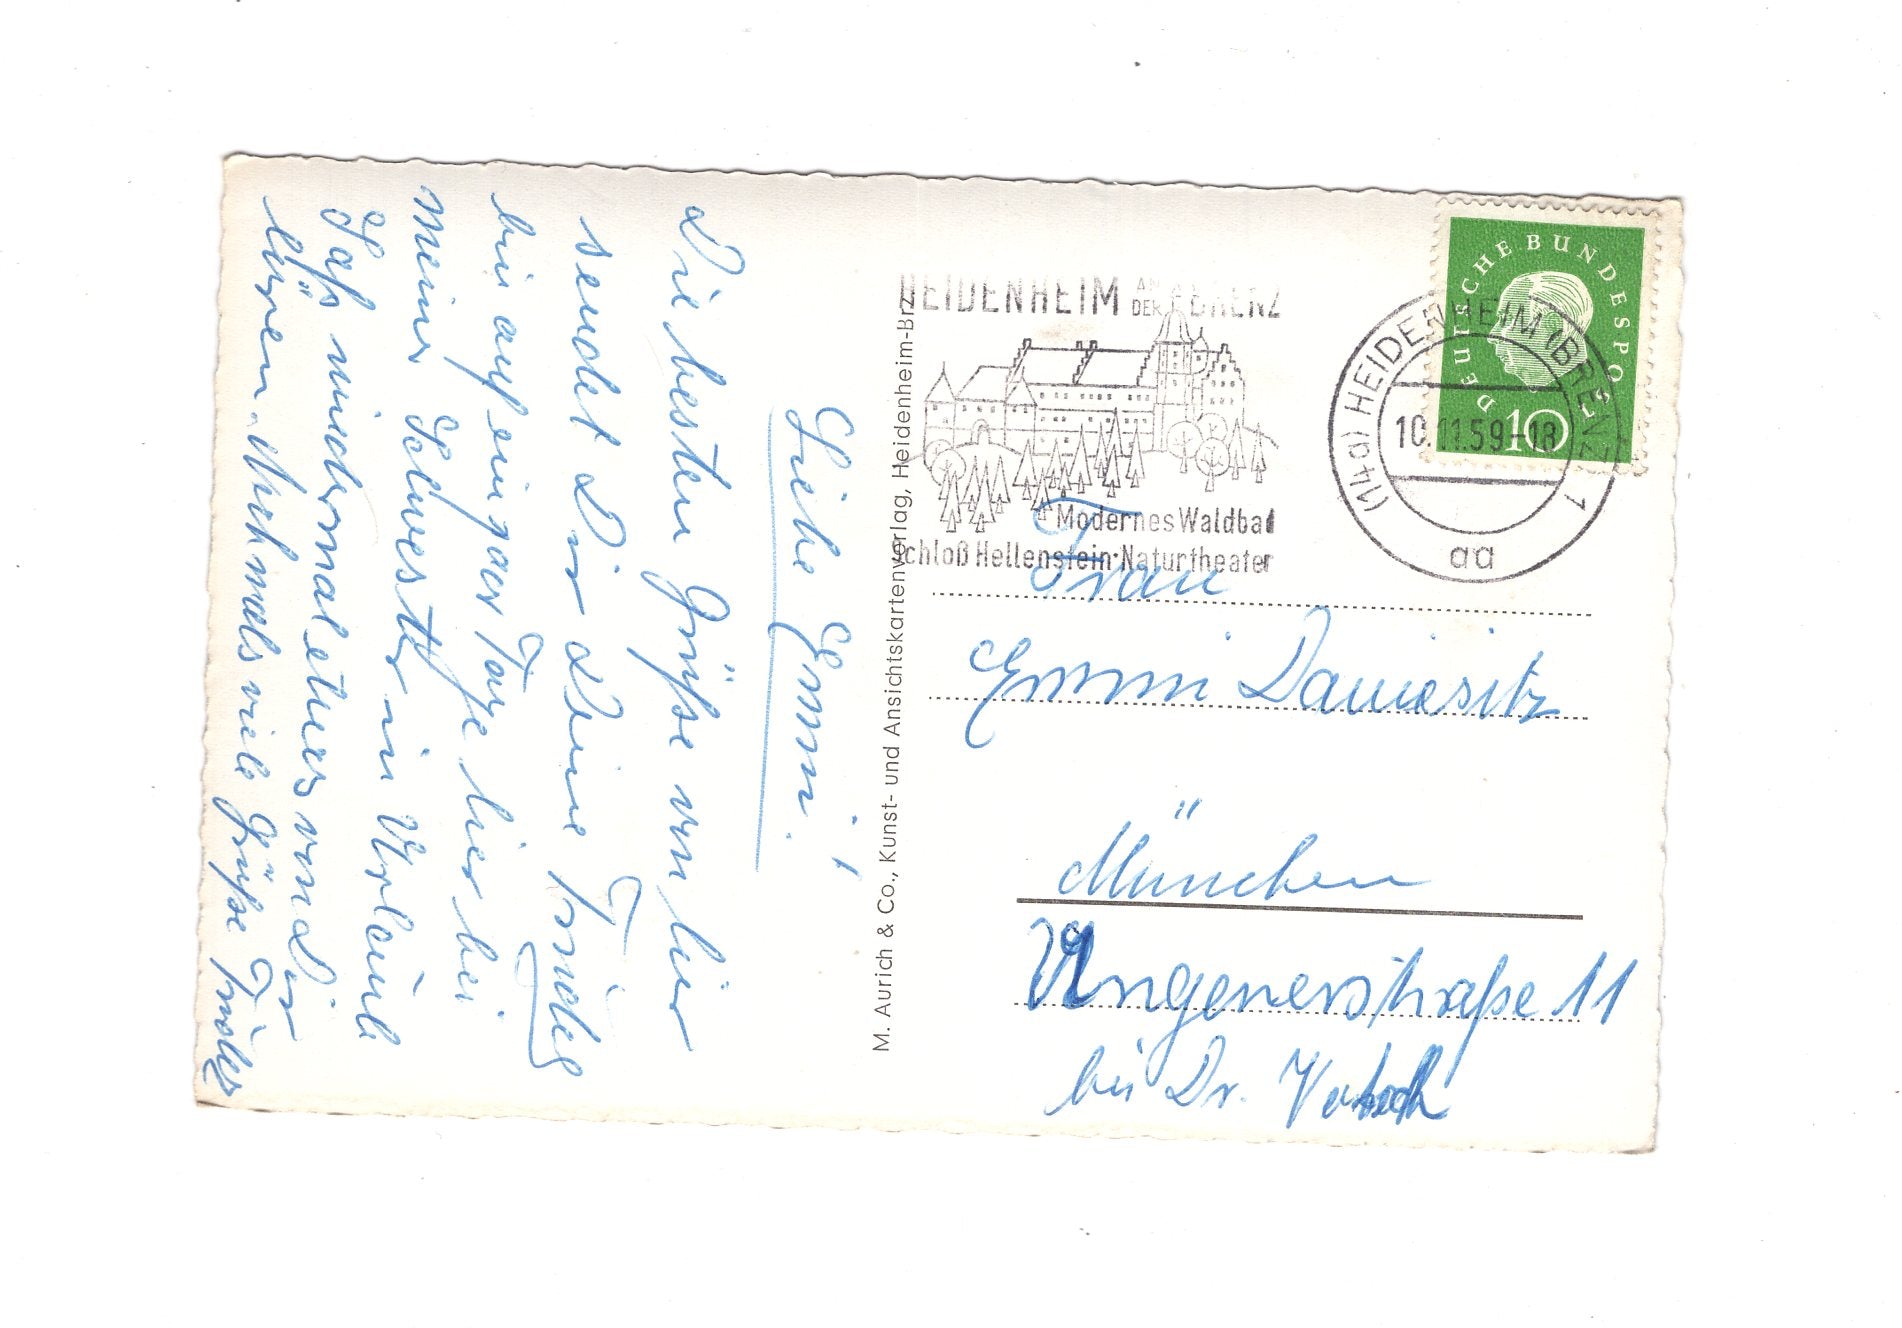 Liebe Emmi!
Die besten Grüße von hier
sendet Dir Deine Friedel
bin auf ein paar Tage hier bei
meiner Schwester in Urlaub
Laß wiedermal etwas von Dir
hören. Nochmals viele Grüße Friedel
M. Aurich & Co., Kunst- und Ansichtskartenverlag, Heidenheim-Brz.
HEIDENHEIM AN DER BRENZ
Modernes Waldbad
Schloß Hellenstein·Naturtheater
(14a) HEIDENHEIM (BRENZ) 1
10.11.59-18
aa
DEUTSCHE BUNDESPOST
10
Frau
Emmi
München
Ungererstraße 11
bei Dr.